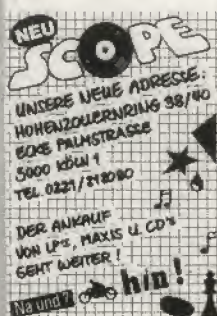 NEU
SCOPE
UNSERE NEUE ADRESSE:
HOHENZOLLERNRING 38/40
ECKE PALMSTRASSE
5000 KÖLN 1
TEL. 0221/218080
DER ANKAUF
VON LP's, MAXIS U. CD's
GEHT WEITER!
Na und?
hin!